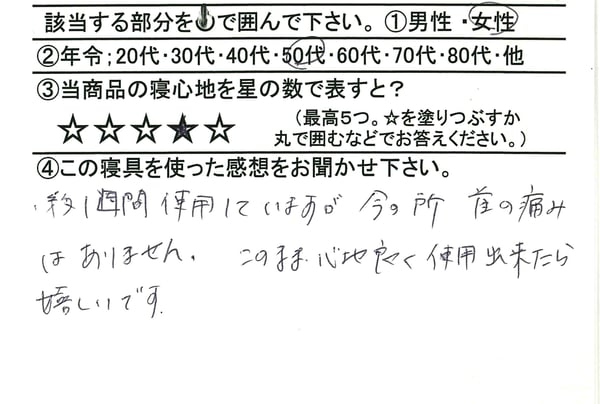 該当する部分を○で囲んで下さい。①男性・女性
②年令；20代・30代・40代・50代・60代・70代・80代・他
③当商品の寝心地を星の数で表すと？
☆☆☆★☆ （最高５つ。☆を塗りつぶすか
丸で囲むなどでお答えください。）
④この寝具を使った感想をお聞かせ下さい。
約1週間使用していますが 今の所 首の痛み
はありません。 このまま心地良く使用出来たら
嬉しいです。